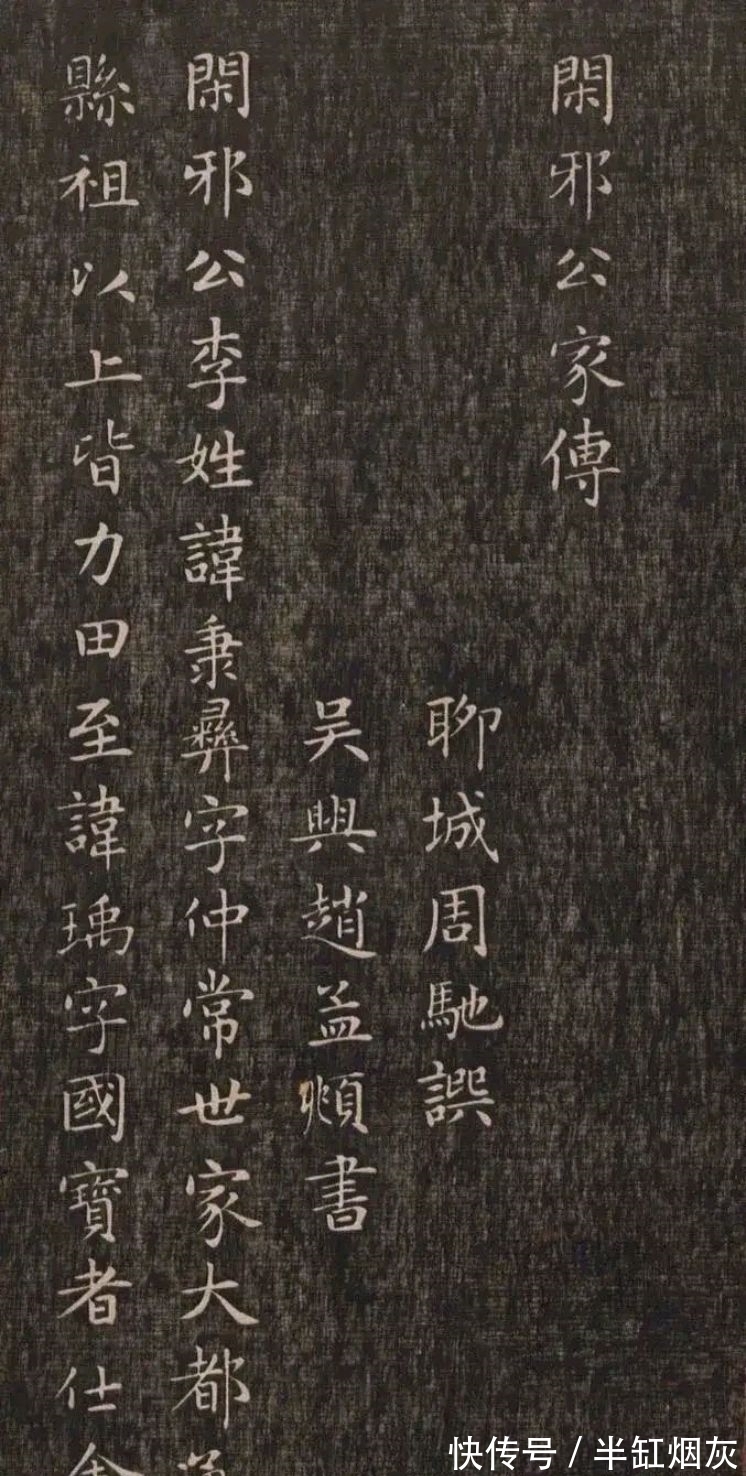 閑邪公家傳
聊城周馳譔
吴興趙孟頫書
閑邪公李姓諱秉彞字仲常世家大都
縣祖以上皆力田至諱瑀字國寶者仕
快传号 / 半缸烟灰